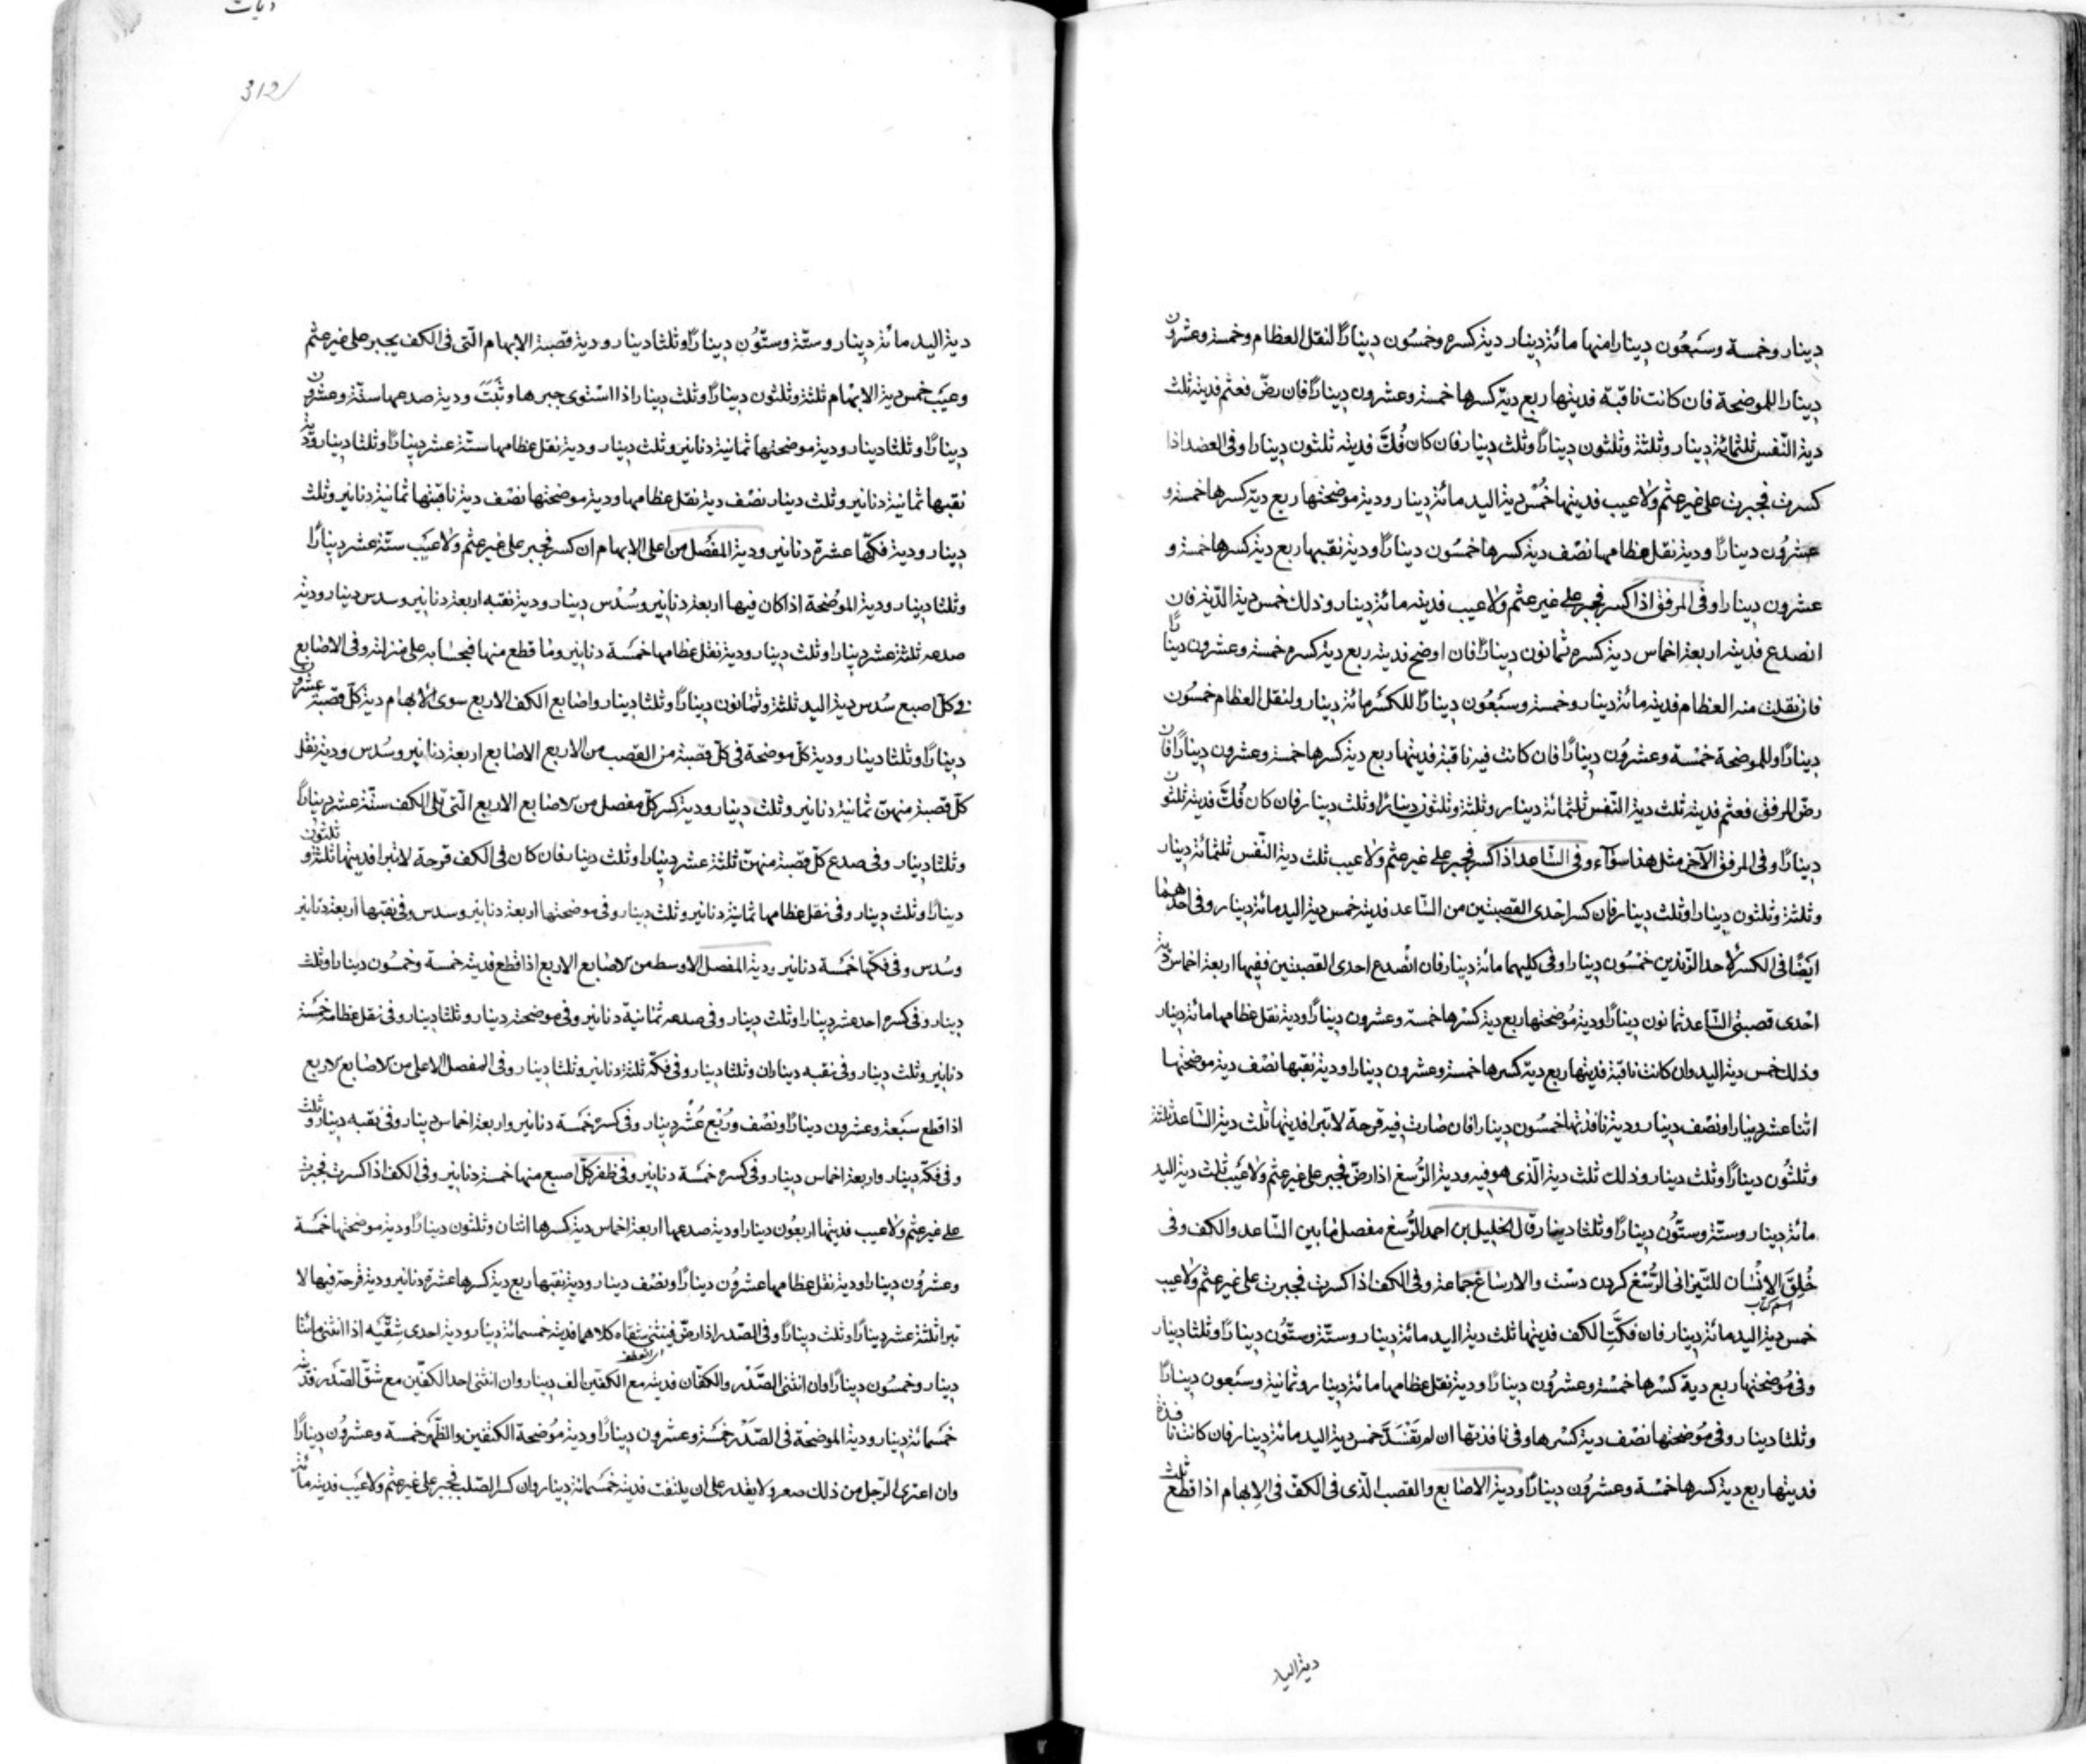 دينار وخمسة وسبعُون دينارا منها مائة دينار دية كسره وخمسُون دينارًا لنقل العظام وخمسة وعشرون
دينارا للموضحة فان كانت ناقبة فديتها ربع دية كسرها خمسة وعشرون دينارًا فان رضّ فعثم فديته ثلث
دية النّفس ثلثمائة دينار وثلثة وثلثون دينارًا وثلث دينار فان كان فُكَّ فديته ثلثون دينارا وفى العضد اذا
كسرت فجبرت على غير عثم ولا عيب فديتها خُمْس دية اليد مائة دينار ودية موضحتها ربع دية كسرها خمسة و
عشرُون دينارًا ودية نقل عظامها نصْف دية كسرها خمسُون دينارًا ودية نقبها ربع دية كسرها خمسة و
عشرون دينارا وفى المرفق اذا كسر فجبر على غير عثم ولا عيب فديته مائة دينار وذلك خمس دية الدّية فان
انصدع فديته اربعة اخماس دية كسره ثمانون دينارًا فان اوضح فديته ربع دية كسره خمسة وعشرون دينارًا
فان نقلت منه العظام فديته مائة دينار وخمسة وسَبْعُون دينارًا للكسْر مائة دينار ولنقل العظام خمسُون
دينارًا وللموضحة خمْسة وعشرُون دينارًا فان كانت فيه ناقبة فديتها ربع دية كسرها خمسة وعشرون دينارًا فان
رضّ المرفق فعثم فديته ثلث دية النّفس ثلثمائة دينار وثلثة وثلثون دينارًا وثلث دينار فان كان فُكَّ فديته ثلثون
دينارًا وفى المرفق الآخر مثل هذا سوآء وفى السّاعد اذا كسر فجبر على غير عثم ولا عيب ثلث دية النّفس ثلثمائة دينار
وثلثة وثلثون دينارا وثلث دينار فان كسر احدى القصبتين من السّاعد فديته خمس دية اليد مائة دينار وفى احدهما
ايضًا فى الكسر لأحد الزّندين خمْسُون دينارا وفى كليهما مائة دينار فان انْصدع احدى القصبتين ففيها اربعة اخماس دية
احْدى قصبتى السّاعد ثمانون دينارًا ودية مُوضحتها ربع دية كسْرها خمسة وعشرون دينارًا ودية نقل عظامها مائة دينار
وذلك خمس دية اليد وان كانت ناقبة فديتها ربع دية كسرها خمسة وعشرون دينارا ودية نقبها نصْف دية موضحتها
اثنا عشر دينارا ونصْف دينار ودية نافذتها خمسُون دينارا فان صارت فيه قرحة لا تبرا فديتها ثلث دية السّاعد ثلثة
وثلثُون دينارًا وثلث دينار وذلك ثلث دية الّذى هو فيه ودية الرُّسغ اذا رضّ فجبر على غير عثم ولا عيْب ثلث دية اليد
مائة دينار وستّة وستّون دينارًا وثلثا دينار قال الخليل بن احمد الرُّسغ مفصل مابين السّاعد والكف وفى
خُلِقَ الانْسَان للتّيزانى الرُّسْغ كردن دسْت والارساغ جماعة وفى الكف اذا كسرت فجبرت على غير عثم ولا عيب
اسم كتاب
خمس دية اليد مائة دينار فان فكّت الكف فديتها ثلث دية اليد مائة دينار وستّة وستّون دينارًا وثلثا دينار
وفى مُوْضحتها ربع دية كسْرها خمْسة وعشرُون دينارًا ودية نقل عظامها مائة دينار وثمانية وسَبْعون دينارًا
وثلثا دينار وفى مُوضحتها نصْف دية كسْرها وفى نافذتها ان لم تنْسَدّ خمس دية اليد مائة دينار فان كانت نافذة
فديتها ربع دية كسرها خمْسة وعشرُون دينارًا ودية الاصابع والقصب الّذى فى الكفّ فى الابهام اذا قطع ثلث
دية اليد
ديات
312
دية اليد مائة دينار وستّة وستّون دينارًا وثلثا دينار ودية قصبة الابهام الّتى فى الكف يجبر على غير عثم
وعيْب خمس دية الابهام ثلثة وثلثون دينارًا وثلث دينار اذا اسْتوى جبرها وثبَتَتْ ودية صدعها ستّة وعشرون
دينارًا وثلثا دينار ودية موضحتها ثمانية دنانير وثلث دينار ودية نقل عظامها ستّة عشر دينارًا وثلثا دينار ودية
نقبها ثمانية دنانير وثلث دينار نصْف دية نقل عظامها ودية موضحتها نصْف دية ناقبتها ثمانية دنانير وثلث
دينار ودية فكّها عشرة دنانير ودية المفْصل من اعلى الابهام ان كسر فجبر على غير عثم ولا عيْب ستّة عشر دينارًا
وثلثا دينار ودية الموُضحة اذا كان فيها اربعة دنانير وسُدْس دينار ودية نقبه اربعة دنانير وسدس دينار ودية
صدعه ثلثة عشر دينارا وثلث دينار ودية نقل عظامها خمْسة دنانير وما قطع منها فبحسابه على منزلته وفى الاصابع
فى كلّ اصبع سُدس دية اليد ثلثة وثمانون دينارًا وثلثا دينار واصابع الكف الاربع سوى الابهام دية كلّ قصبة عشرون
دينارًا وثلثا دينار ودية كلّ موضحة فى كلّ قصبة من القصب من الاربع الاصابع اربعة دنانير وسُدس ودية نقل
كلّ قصبة منهنّ ثمانية دنانير وثلث دينار ودية كسر كلّ مفصل من الاصابع الاربع الّتى تلى الكف ستّة عشر دينارًا
وثلثا دينار وفى صدع كلّ قصبة منهنّ ثلثة عشر دينارا وثلث دينار فان كان فى الكف قرحة لا تبرا فديتها ثلثة وثلثون
دينارًا وثلث دينار وفى نقل عظامها ثمانية دنانير وثلث دينار وفى موضحتها اربعة دنانير وسدس وفى نقبها اربعة دنانير
وسُدس وفى فكّها خمْسة دنانير ودية المفصل الاوسط من الاصابع الاربع اذا قطع فديته خمسة وخمسُون دينارا وثلث
دينار وفى كسره احد عشر دينارا وثلث دينار وفى صدعه ثمانية دنانير وفى موضحته دينار وثلثا دينار وفى نقل عظامه خمْسة
دنانير وثلث دينار وفى نقبه ديناران وثلثا دينار وفى فكّه ثلثة دنانير وثلثا دينار وفى المفصل الاعلى من الاصابع الاربع
اذا قطع سَبعة وعشرون دينارًا ونصْف ورُبْع عُشْر دينار وفى كسره خمْسة دنانير واربعة اخماس دينار وفى نقبه دينار وثلث
وفى فكّه دينار واربعة اخماس دينار وفى كسره خمْسة دنانير وفى ظفر كلّ اصبع منها خمسة دنانير وفى الكف اذا كسرت فجبرت
على غير عثم ولا عيب فديتها اربعُون دينارا ودية صدعها اربعة اخماس دية كسرها اثنان وثلثون دينارًا ودية موضحتها خمْسة
وعشرُون دينارا ودية نقل عظامها عشرُون دينارًا ونصْف دينار ودية نقبها ربع دية كسرها عشرة دنانير ودية قرحة فيها لا
تبرا ثلثة عشر دينارًا وثلث دينارًا وفى الصّدر اذا رضّ فيثنى شقاه كلاهما فديته خمسمائة دينار ودية احدى شِقّيْه اذا انثنى مائتا
دينار وخمسُون دينارًا وان انثنى الصّدْر والكفّان فديته مع الكفّين الف دينار وان انثنى احد الكفّين مع شقّ الصّدر فديته
خمسمائة دينار ودية الموضحة فى الصّدْر خمْسة وعشرون دينارًا ودية مُوضحة الكتفين والظّهر خمسة وعشرُون دينارًا
وان اعترى الرّجل من ذلك صعر ولا يقدر على ان يلتفت فديته خمسمائة دينار وان كسر الصّلب فجبر على غير عثم ولا عيْب فديته مائة